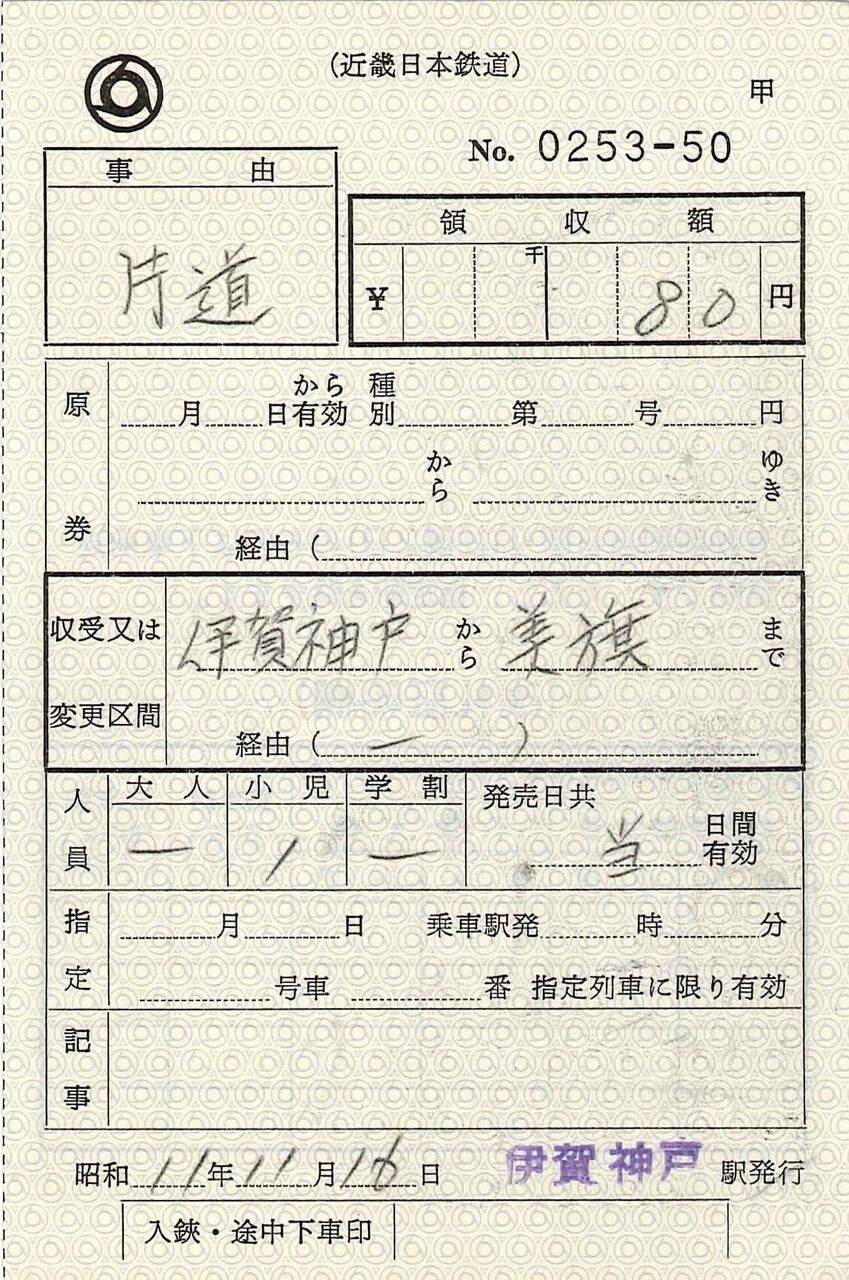 (近畿日本鉄道)
甲
No. 0253-50
事由
片道
領収額
千
¥ 80円
原券
から 種
月 日有効 別 第 号 円
から ゆき
経由(
収受又は 伊賀神戸 から 美旗 まで
変更区間
経由( ー )
人員
大人 小児 学割 発売日共
ー 1 ー 当 日間有効
指定
月 日 乗車駅発 時 分
号車 番 指定列車に限り有効
記事
昭和11年11月16日 伊賀神戸 駅発行
入鋏・途中下車印